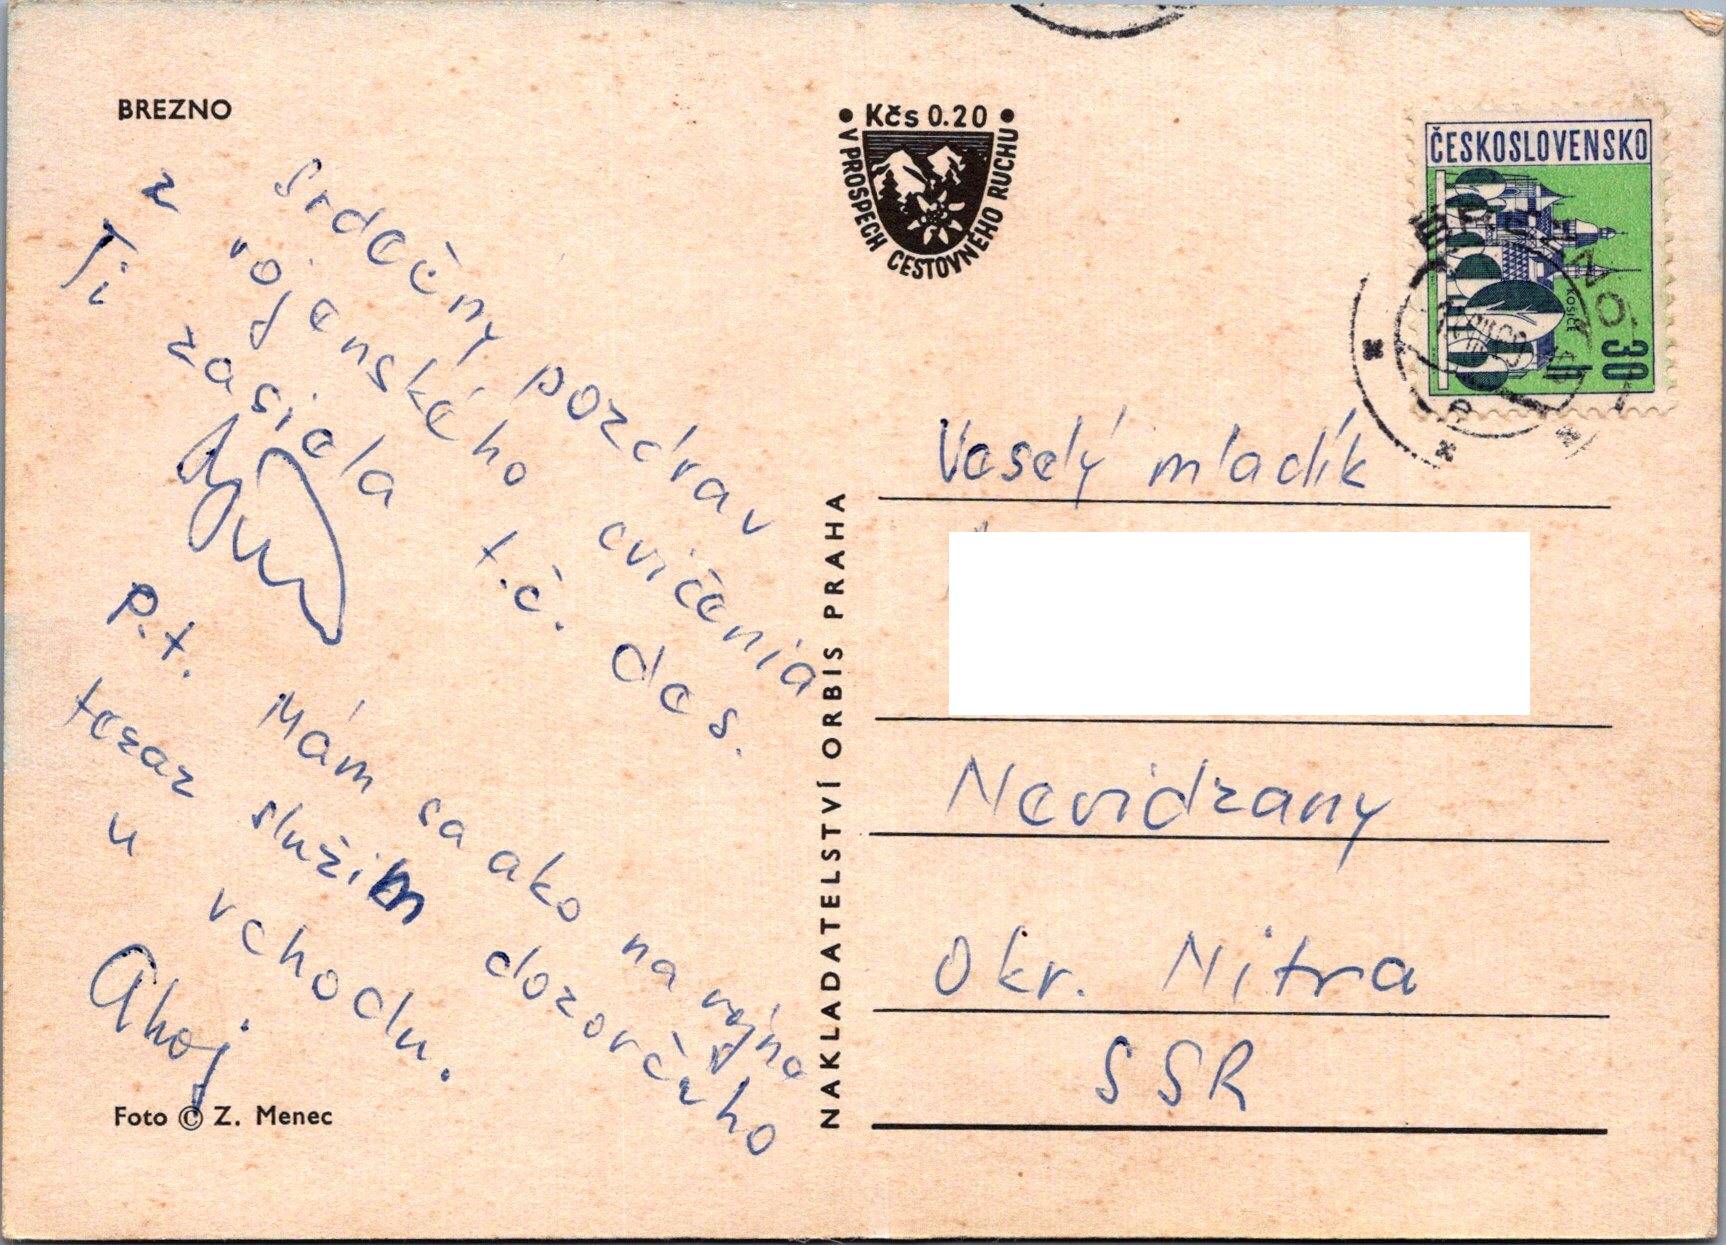 BREZNO
Srdečný pozdrav
z vojenského cvičenia
Ti zasiela t.č. des.
P.t. Mám sa ako na vojne
teraz slúžim dozorčeho
u vchodu.
Ahoj
Foto © Z. Menec
• Kčs 0.20 •
V PROSPECH CESTOVNÉHO RUCHU
NAKLADATELSTVÍ ORBIS PRAHA
ČESKOSLOVENSKO
KOŠICE
30 h
Veselý mladík
Nevidzany
Okr. Nitra
SSR